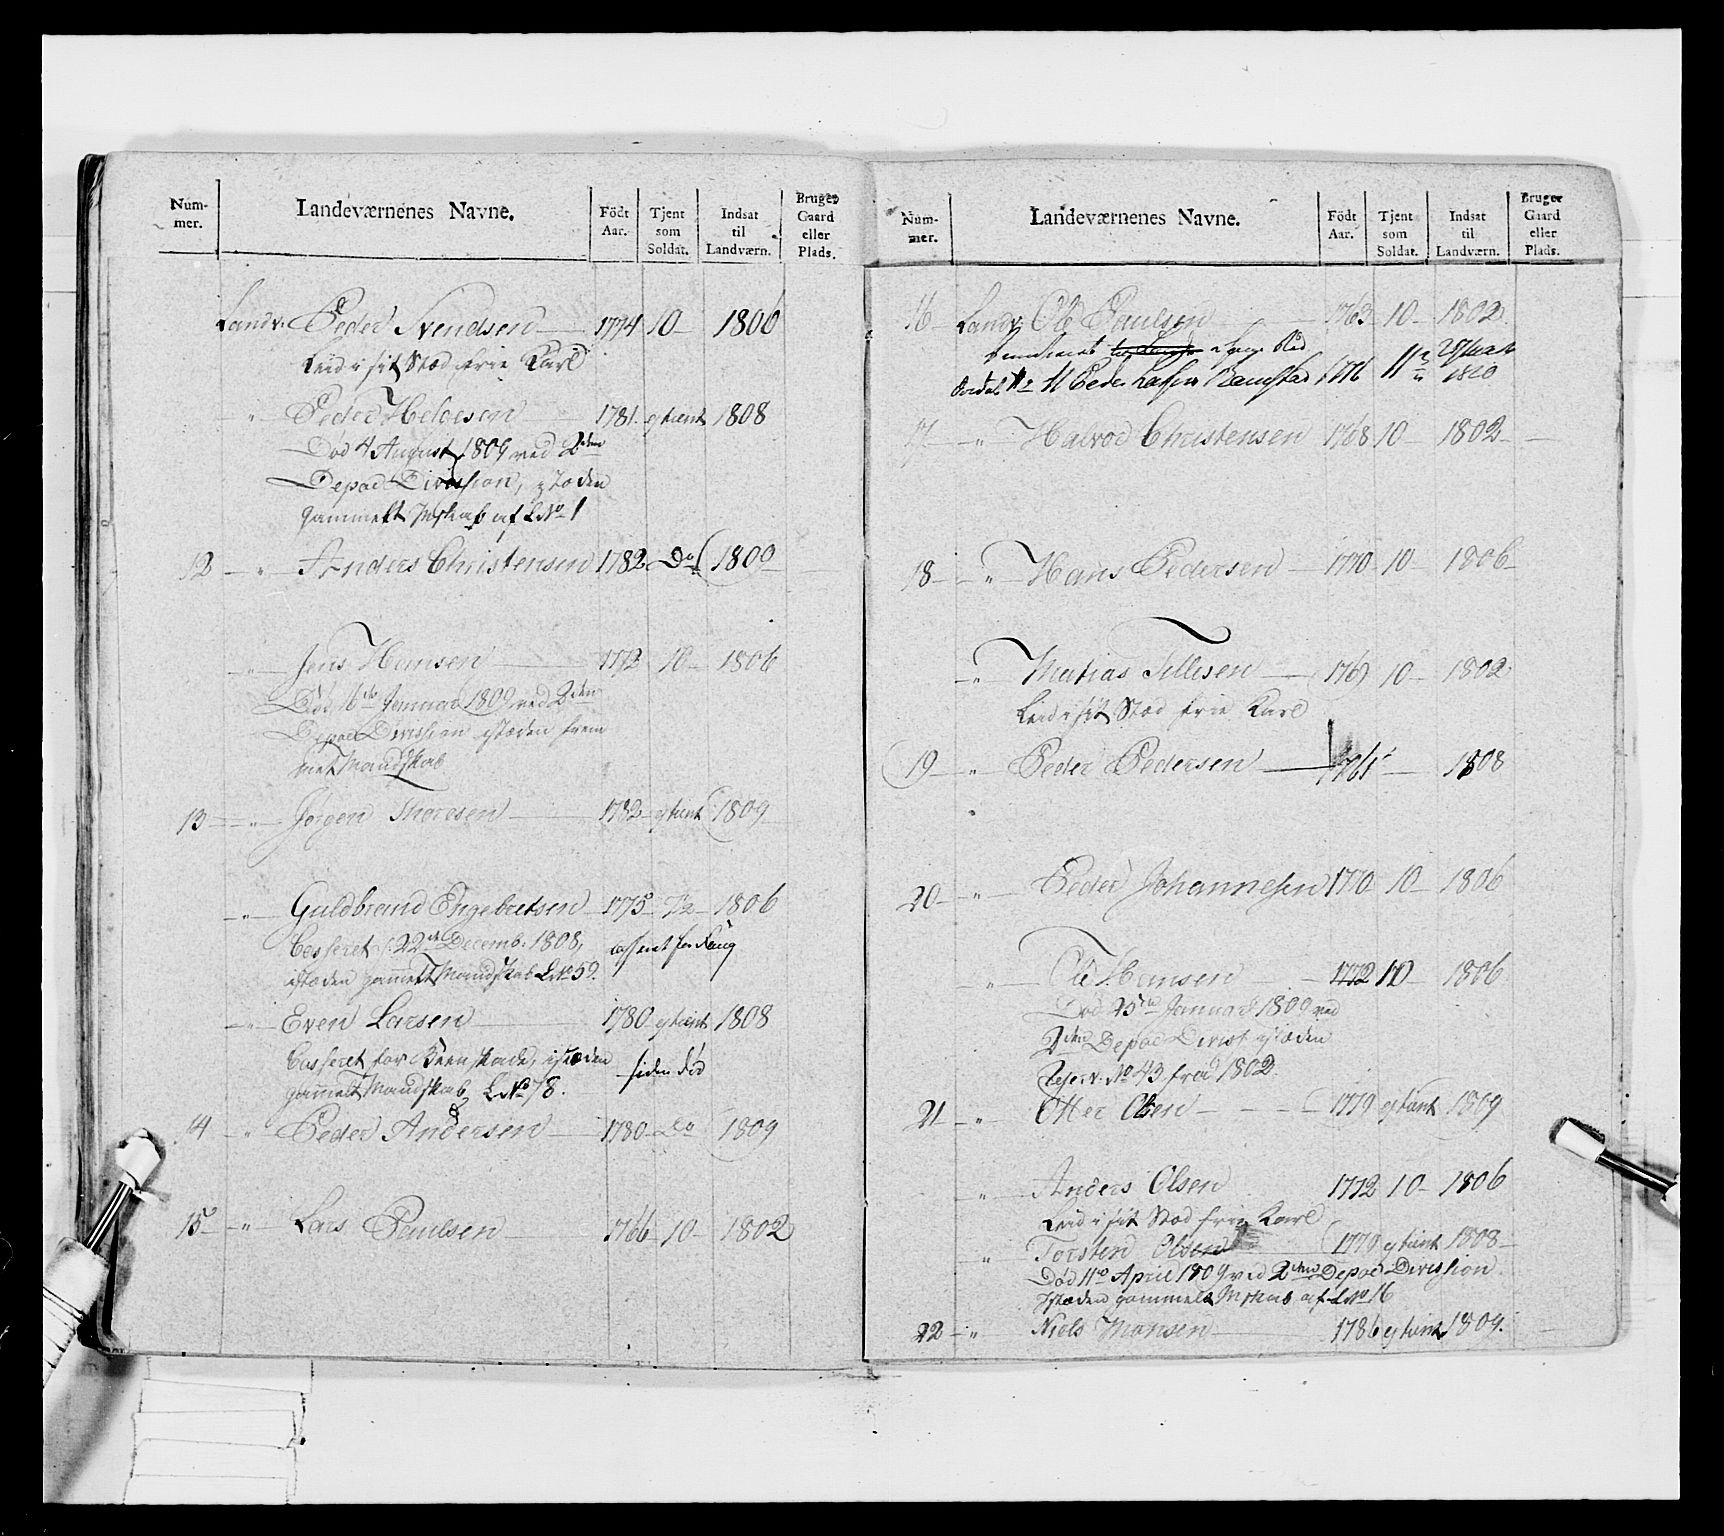 Num-mer. Landeværnenes Navne. Födt Aar. Tjent som Soldat. Indsat til Landværn. Bruger Gaard eller Plads.
Landv. Peder Svendsen 1774 10 1806
Leid i sit Stæd frie Karl
" Peder 1781 ej tient 1808
Död 4 August 1809 ved 2den
Depot Division, istæden
gammelt Mskab af LNo 1
12 " Anders Christensen 1782 Do 1809
" Jens Hansen 1772 10 1806
Död 16de Januar 1809 ved 2den
Depot Division istæden frem
met Mandskab
13 " Jörgen Thoresen 1782 ej tient 1809
" Guldbrand Engebretsen 1775 7½ 1806
Casseret 22de Decemb: 1808,
istæden gammelt Mandskab LNo 59.
" Even Larsen 1780 ej tient 1808
Casseret for Been skade, istæden siden död
gammelt Mandskab LNo 78.
14 " Peder Andersen 1780 Do 1809
15 " Lars Paulsen 1766 10 1802
Num-mer. Landeværnenes Navne. Födt Aar. Tjent som Soldat. Indsat til Landværn. Bruger Gaard eller Plads.
16 Landv. Ole Paulsen 1763 10 1802
11 Peder 1776 11 1810
17 " Halvor Christensen 1768 10 1802
18 " Hans Pedersen 1770 10 1806
" Matias Tillesen 1769 10 1802
Leid i sit Stæd frie Karl
19 " Peder Pedersen 1761 1808
20 " Peder Johannesen 1770 10 1806
" Ole Hansen 1772 10 1806
Död 25de Januar 1809 ved
2den Depot Divist istæden
Reserv. No 43 fra 1802.
21 " Otter Olsen 1779 ej tient 1809
" Anders Olsen 1772 10 1806
Leid i sit Stæd frie Karl
" Torsten Olsen 1779 ej tient 1808
Död 11te April 1809 ved 2den Depot Division
Istæden gammelt Mskab af LNo 16
22 " Niels Monsen 1786 ej tient 1809.